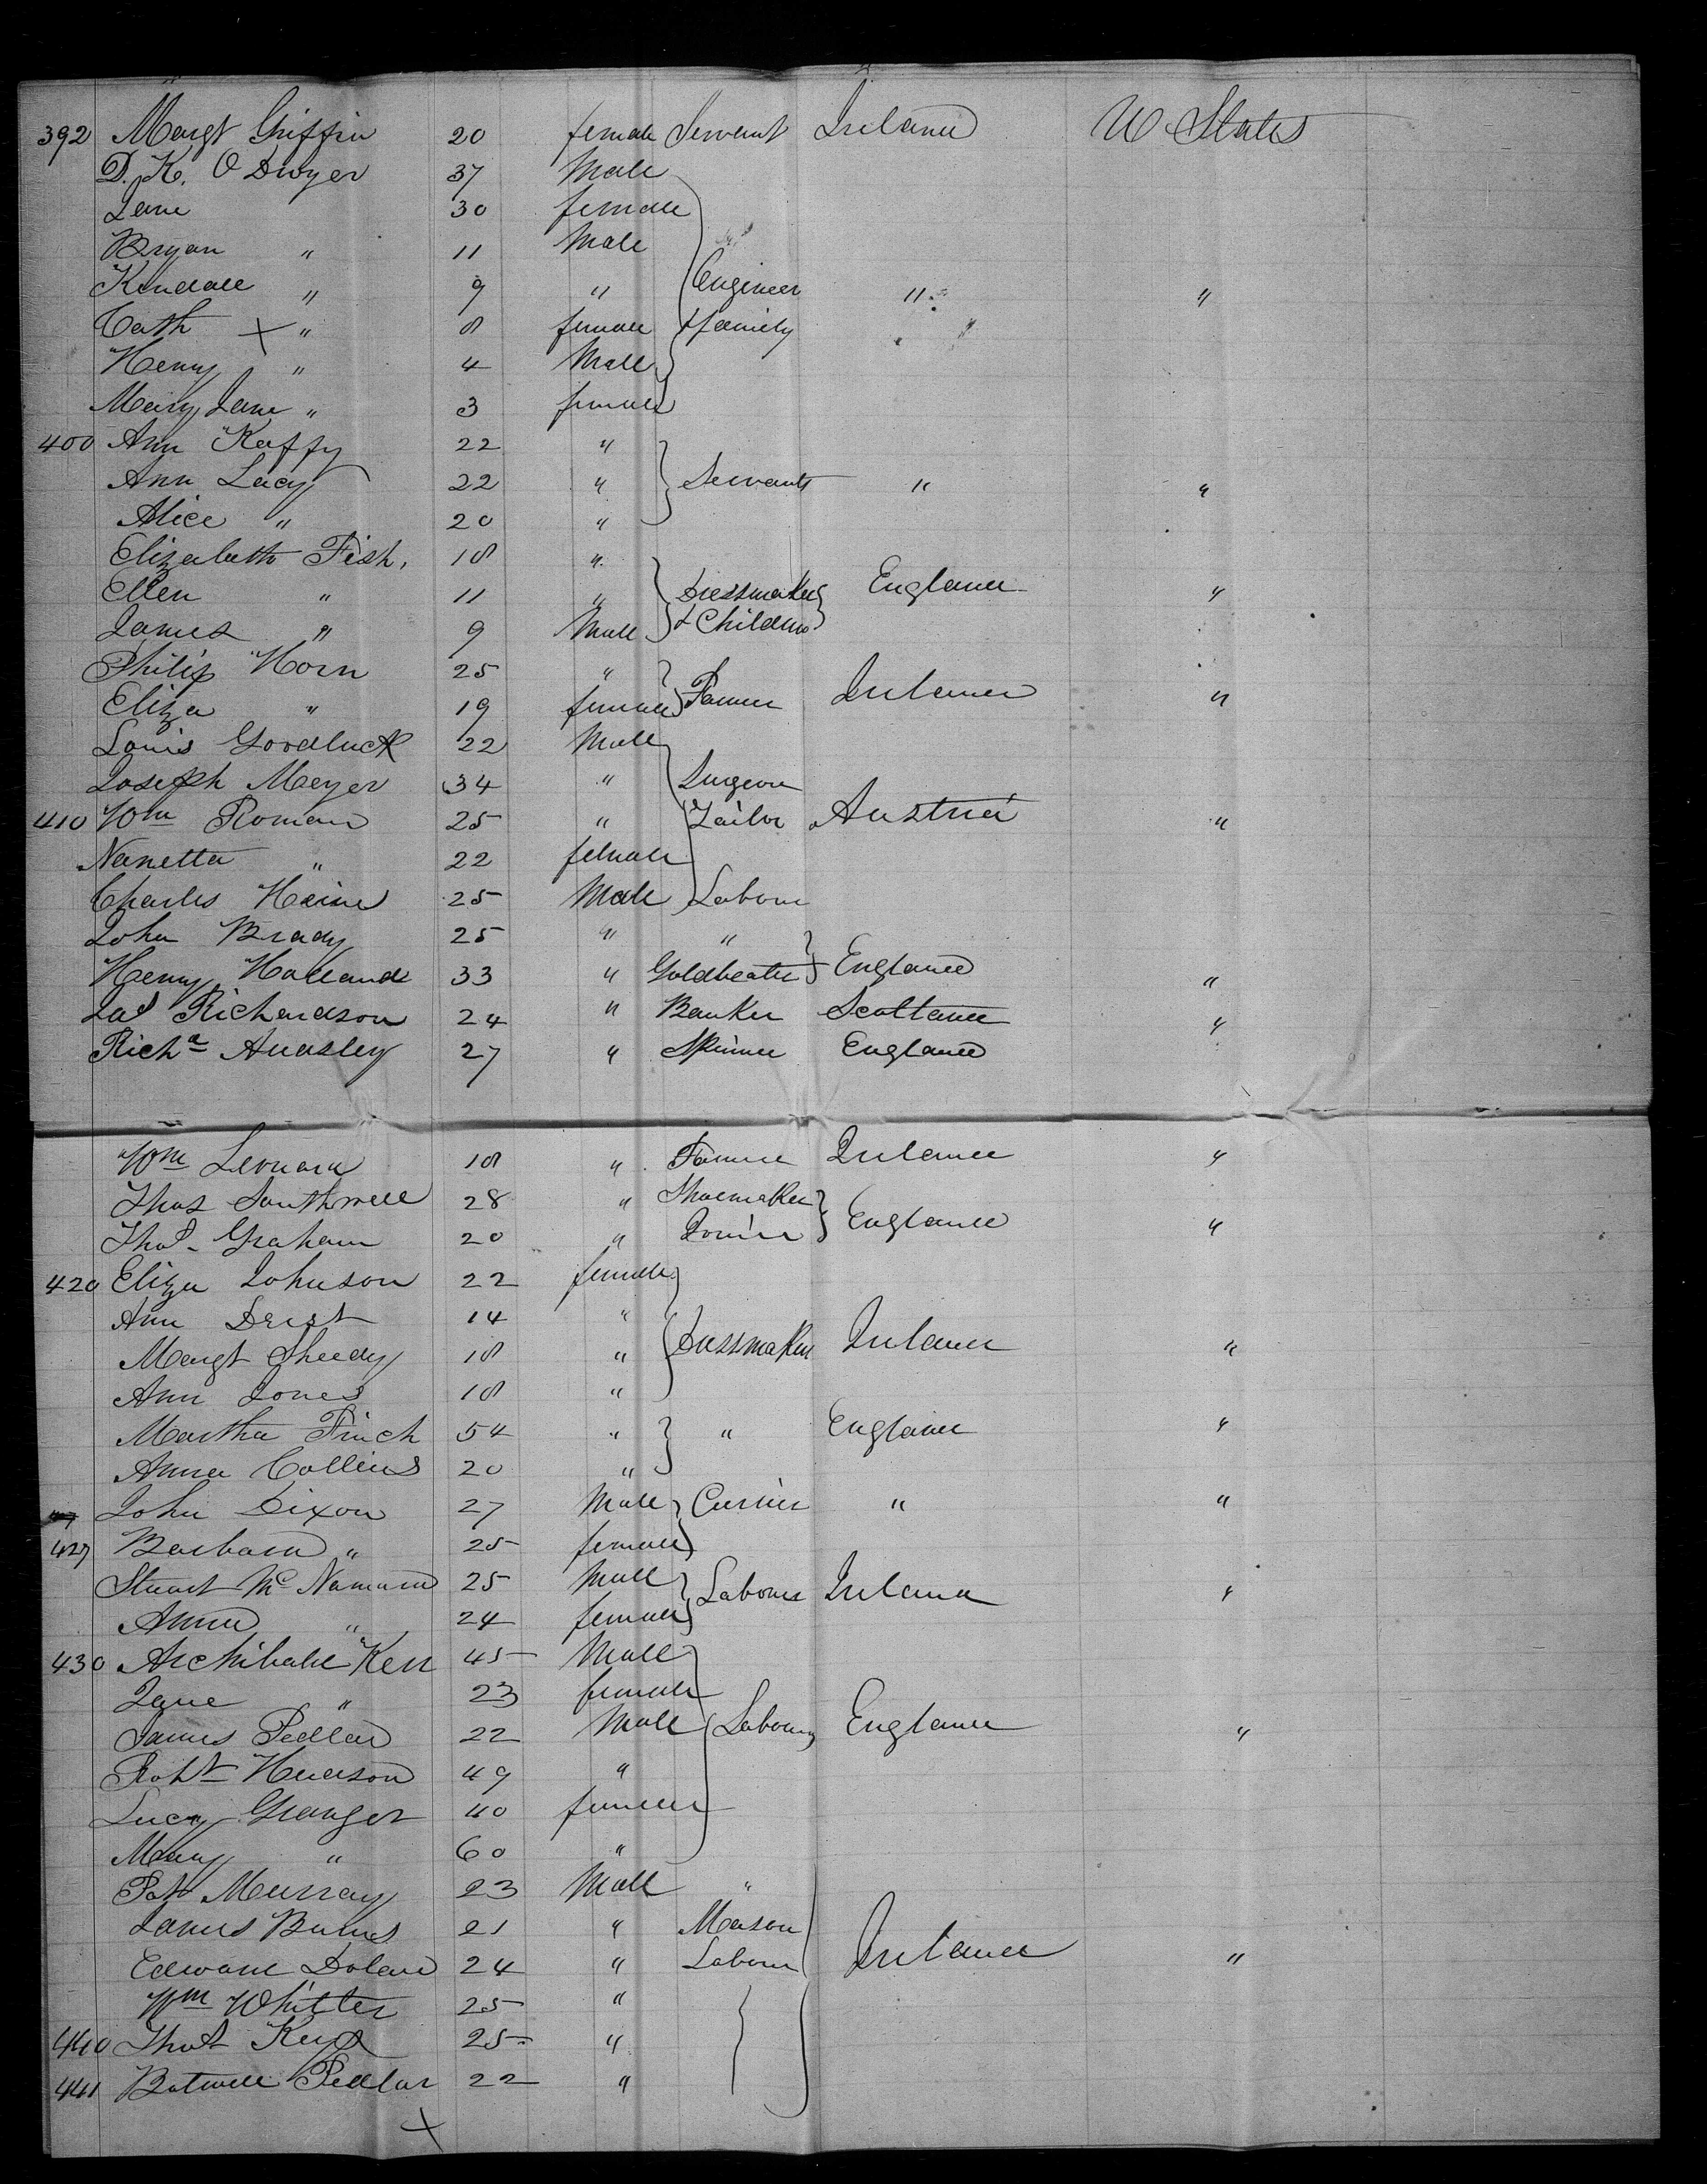 392 Margt Griffin 20 female Servant Ireland U States
D. K. O Dwyer 37 Male
Jane 30 female
Bryan " 11 Male
Kendall " 9 " Engineer " "
Cath + " 8 female & family
Henry " 4 Male
Mary Jane " 3 female
400 Ann Kaffy 22 "
Ann Lacy 22 " Servants " "
Alice " 20 "
Elizabeth Fish, 18 "
Ellen " 11 " Dressmaker England "
James " 9 Male & Children
Philip Horn 25 "
Eliza " 19 female Farmer Ireland "
Louis Goodluck 22 Male
Joseph Meyer 34 " Surgeon
410 Wm Roman 25 " Tailor Austria "
Nanetta " 22 female
Charles Heine 25 Male Labour
John Brady 25 " "
Henry Holland 33 " Goldbeater England "
Jas Richardson 24 " Banker Scotland "
Richd Ansley 27 " Skinner England
Wm Leonard 18 " Farmer Ireland "
Thos Southwell 28 " Shoemaker
Thos Graham 20 " Joiner England "
420 Eliza Johnson 22 female
Ann 14 "
Margt Sheedy 18 " Dressmaker Ireland "
Ann Jones 18 "
Martha Finch 54 " " England "
Anna Collins 20 "
John Dixon 27 Male Currier " "
427 Barbara " 25 female
Stuart McNamara 25 Male Labourer Ireland "
Anna " 24 female
430 Archibald Kerr 45 Male
Jane " 23 female
James Pedlar 22 Male Labourer England "
Robt Hudson 49 "
Lucy Granger 40 female
Mary " 60 "
Pat Murray 23 Male "
James Burns 21 " Mason
Edward Dolan 24 " Labour Ireland "
Wm Whitter 25 "
440 Thos 25 "
441 Pedlar 22 "
+